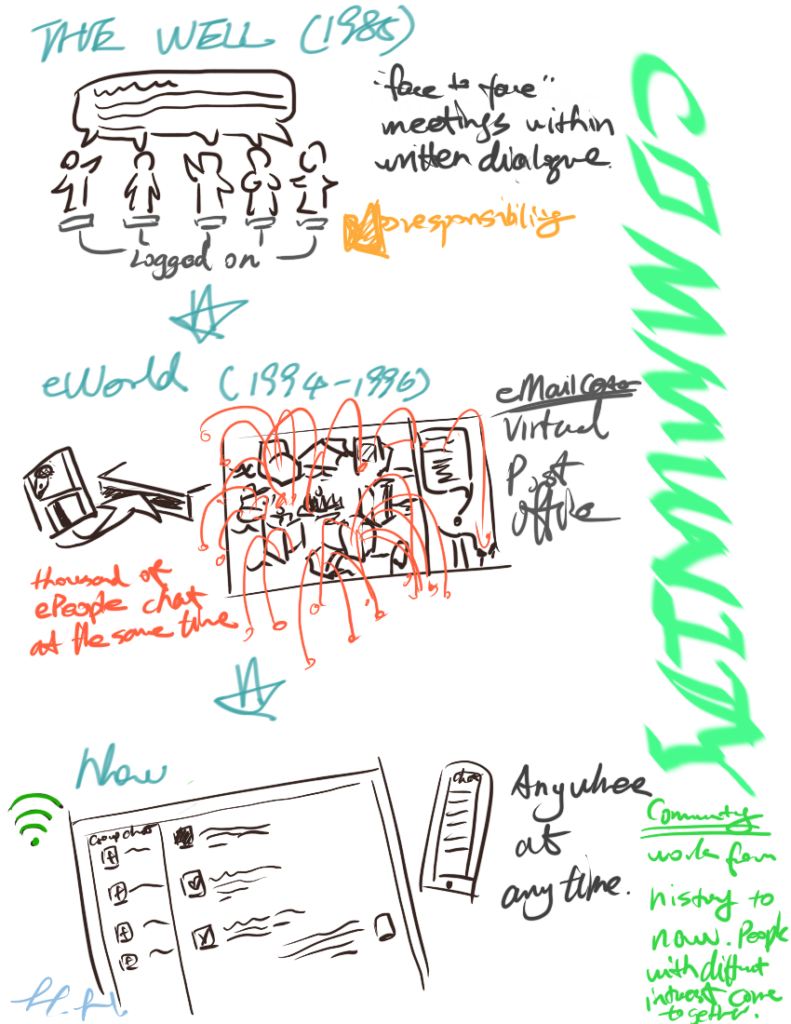 THE WELL (1985)
"face to face"
meetings within
written dialogue.
responsibility
Logged on
eWorld (1994-1996)
eMail Center
Virtual
Post
office
thousand of
ePeople chat
at the same time
Now
Group chat
chat
Anywhere
at
any time.
COMMUNITY
Community
work from
history to
now. People
with diffrent
intrest come
together.